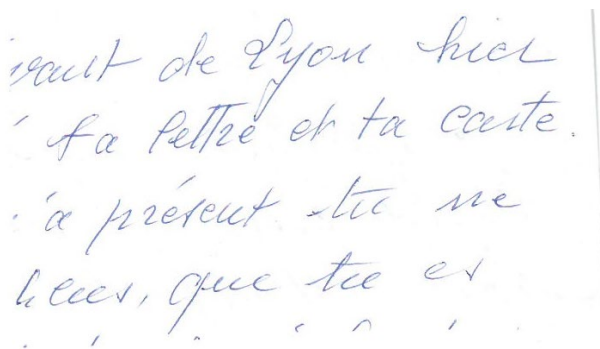 de Lyon hier
ta lettre et ta carte.
à présent tu ne
que tu es